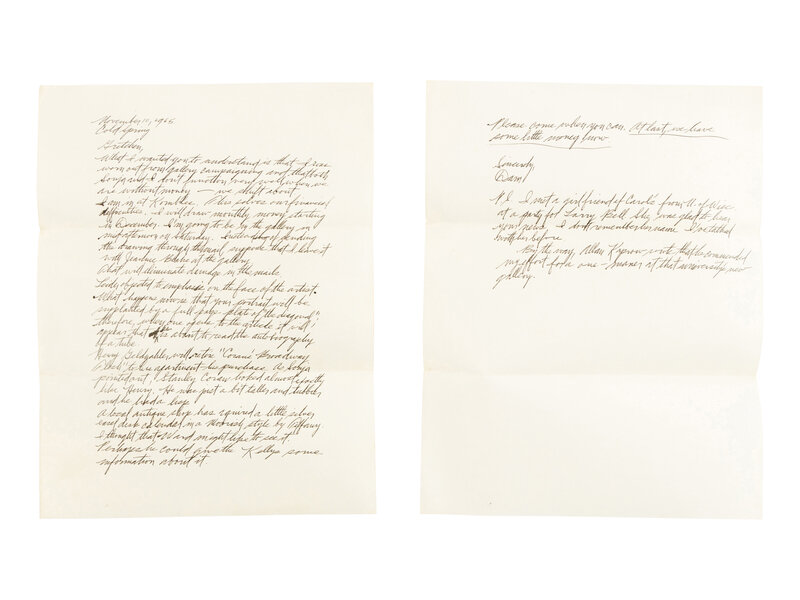 November 10, 1965
Cold Spring
Gretchen,
What I wanted you to understand is that I was
worn out from gallery campaigning and that both
Sonja and I don't function very well when we
are without money — we shift about.
I am in at Kornblee. This solves our financial
difficulties. I will draw monthly money starting
in December. I'm going to be by the gallery in
mid afternoon on Saturday. Instead of sending
the drawing through the mail, suppose that I leave it
with Jeanne Blake at the gallery.
That will eliminate damage in the mails.
Sonja objected to emphasis on the face of the artist.
What happens now is that your portrait will be
supplanted by a full page plate of the diagonal;
therefore, when one opens to the article it will
appear that he is about to read the autobiography
of a tube.
Henry Geldzahler will retire "Coran's Broadway
Flesh" to his apartment — his purchase. As Sonja
pointed out, Stanley Coran looked almost exactly
like Henry. He was just a bit taller and
and he had a limp.
A local antique shop has acquired a little silver
easel desk calendar in a Moorish style by Tiffany.
I thought that Ward might like to see it.
Perhaps he could give the Kellys some
information about it.
Please come when you can. At last, we have
some little money now.
Sincerely
Dan
P.S. I met a girlfriend of Carol's from U. of Wisc
at a party for Larry Bell. She was glad to hear
your news. I don't remember her name. I'd chatted
with her before.
By the way, Allan Kaprow wrote that he commended
my effort for a one-man at that university's new
gallery.